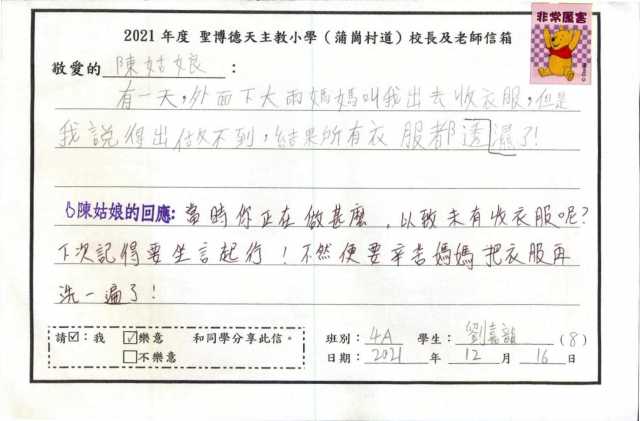 2021 年度 聖博德天主教小學（蒲崗村道）校長及老師信箱
非常厲害
敬愛的 陳姑娘 ：
有一天，外面下大雨媽媽叫我出去收衣服，但是
我說得出做不到，結果所有衣服都透濕了!
陳姑娘的回應: 當時你正在做甚麼，以致未有收衣服呢?
下次記得要坐言起行！不然便要辛苦媽媽把衣服再
洗一遍了！
請☑：我 ☑樂意 和同學分享此信。
□不樂意
班別： 4A 學生： 劉嘉韻 (8)
日期： 2021 年 12 月 16 日